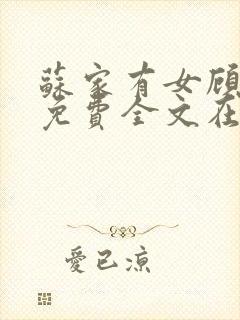 蘇家有女顧
免費全文在
愛已涼